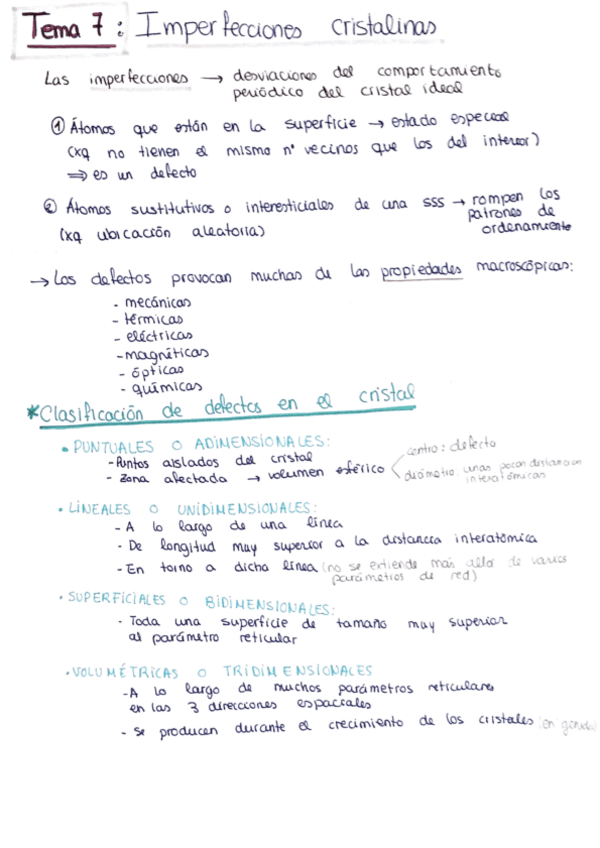 Tema 7: Imperfecciones cristalinas
Las imperfecciones → desviaciones del comportamiento
periódico del cristal ideal
① Átomos que están en la superficie → estado especial
(xq no tienen el mismo nº vecinos que los del interior)
⇒ es un defecto
② Átomos sustitutivos o intersticiales de una sss → rompen los
patrones de
(xq ubicación aleatoria) ordenamiento
→ Los defectos provocan muchas de las propiedades macroscópicas:
- mecánicas
- térmicas
- eléctricas
- magnéticas
- ópticas
- químicas
*Clasificación de defectos en el cristal
• PUNTUALES O ADIMENSIONALES:
- Puntos aislados del cristal
centro: defecto
- Zona afectada → volumen esférico
diámetro: unas pocas distancias
interatómicas
• LINEALES O UNIDIMENSIONALES:
- A lo largo de una línea
- De longitud muy superior a la distancia interatómica
- En torno a dicha línea (no se extiende más allá de varios
parámetros de red)
• SUPERFICIALES O BIDIMENSIONALES:
- Toda una superficie de tamaño muy superior
al parámetro reticular
• VOLUMÉTRICAS O TRIDIMENSIONALES
- A lo largo de muchos parámetros reticulares
en las 3 direcciones espaciales
- Se producen durante el crecimiento de los cristales (en